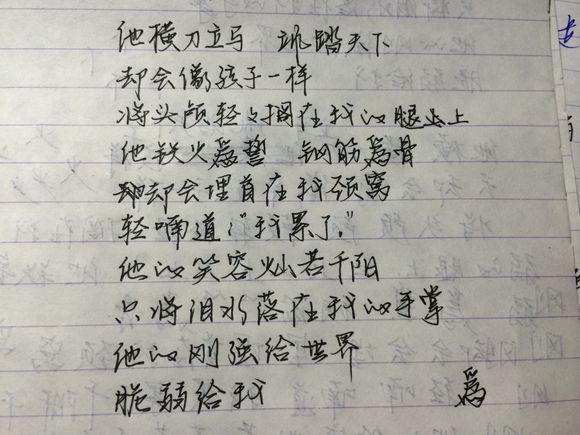 他横刀立马 趴踏天下
却会像孩子一样
将头颅轻轻搁在我的腿上
他铁火為誓 钢筋為骨
却会埋首在我颈窝
轻喃道:"我累了."
他的笑容灿若千阳
只将泪水落在我的手掌
他的刚强给世界
脆弱给我
為